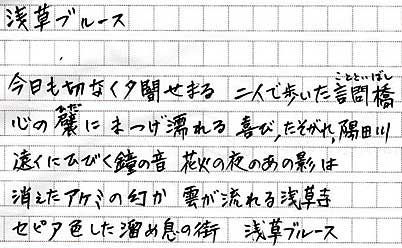 浅草ブルース
今日も切なく夕闇せまる 二人で歩いた言問橋
ことといばし
心の襞にまつげ濡れる 喜び,たそがれ,隅田川
ひだ
遠くにひびく鐘の音 花火の夜のあの影は
消えたアケミの幻か 雲が流れる浅草寺
セピア色した溜め息の街 浅草ブルース